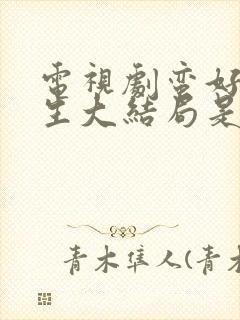 電視劇蛮好
生大結局是
青木隼人(青木